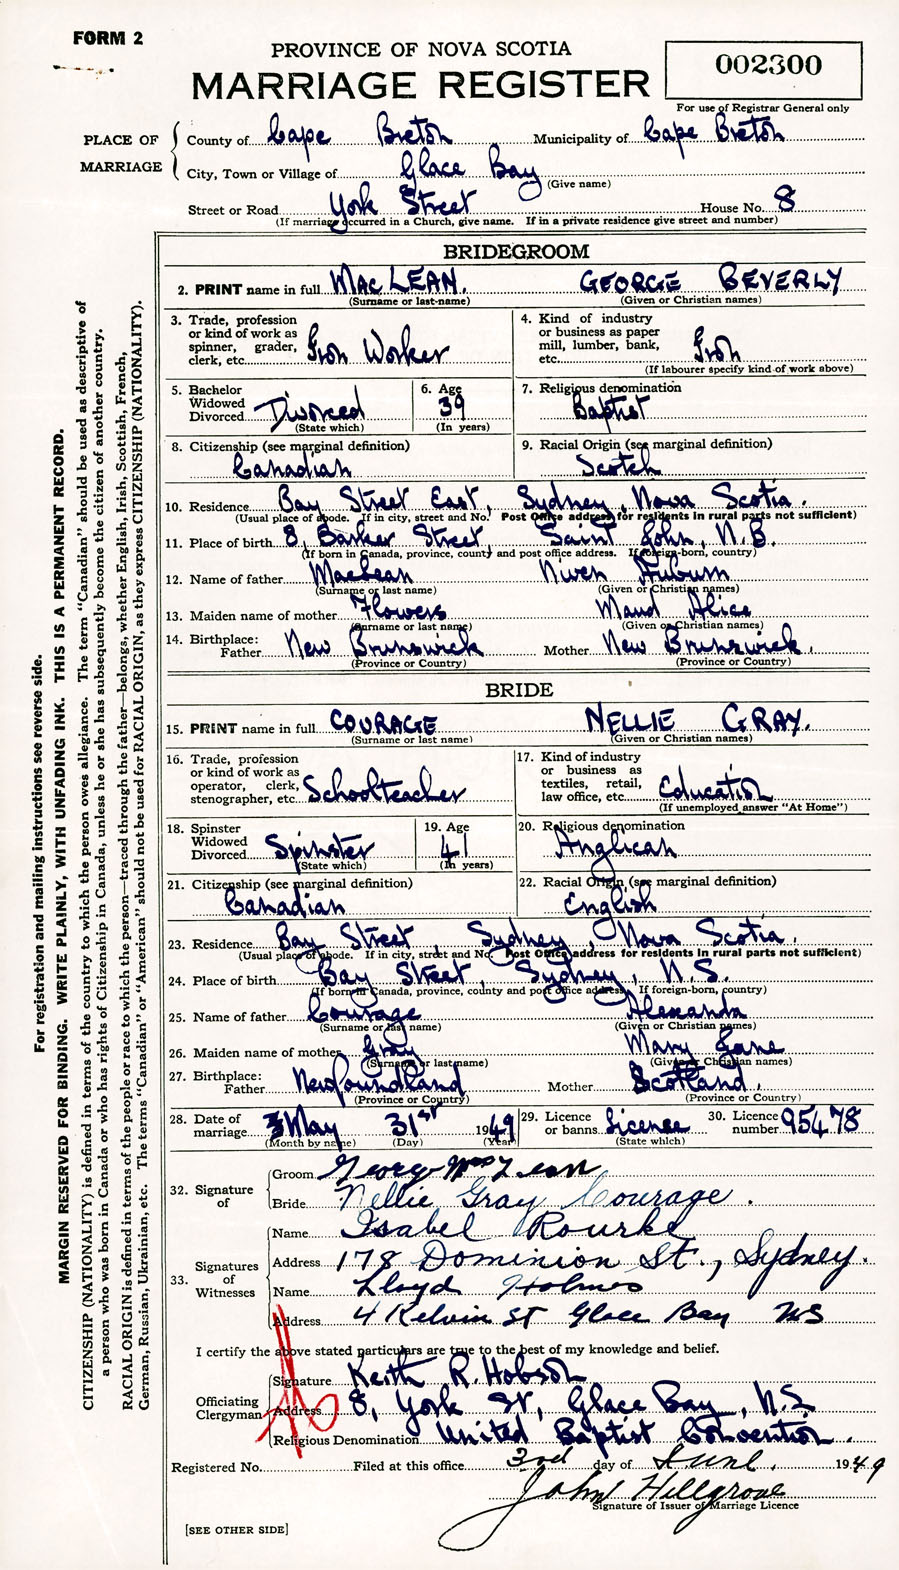 FORM 2
PROVINCE OF NOVA SCOTIA
MARRIAGE REGISTER
002300
For use of Registrar General only
PLACE OF MARRIAGE
County of Cape Breton Municipality of Cape Breton
City, Town or Village of Glace Bay
(Give name)
Street or Road York Street House No. 8
(If marriage occurred in a Church, give name. If in a private residence give street and number)
BRIDEGROOM
2. PRINT name in full MacLEAN. GEORGE BEVERLY
(Surname or last-name) (Given or Christian names)
3. Trade, profession or kind of work as spinner, grader, clerk, etc. Iron Worker
4. Kind of industry or business as paper mill, lumber, bank, etc. Iron
(If labourer specify kind of work above)
5. Bachelor Widowed Divorced Divorced
(State which)
6. Age 39
(In years)
7. Religious denomination
Baptist
8. Citizenship (see marginal definition)
Canadian
9. Racial Origin (see marginal definition)
Scotch
10. Residence Bay Street East, Sydney, Nova Scotia.
(Usual place of abode. If in city, street and No. Post Office address for residents in rural parts not sufficient)
11. Place of birth 8, Barker Street Saint John, N.B.
(If born in Canada, province, county and post office address. If foreign-born, country)
12. Name of father MacLean Niven Auburn
(Surname or last name) (Given or Christian names)
13. Maiden name of mother Flowers Maud Alice
(Surname or last name) (Given or Christian names)
14. Birthplace: Father New Brunswick Mother New Brunswick.
(Province or Country) (Province or Country)
BRIDE
15. PRINT name in full COURAGE NELLIE GRAY.
(Surname or last name) (Given or Christian names)
16. Trade, profession or kind of work as operator, clerk, stenographer, etc. Schoolteacher
17. Kind of industry or business as textiles, retail, law office, etc. Education
(If unemployed answer "At Home")
18. Spinster Widowed Divorced Spinster
(State which)
19. Age 41
(In years)
20. Religious denomination
Anglican
21. Citizenship (see marginal definition)
Canadian
22. Racial Origin (see marginal definition)
English
23. Residence Bay Street, Sydney, Nova Scotia.
(Usual place of abode. If in city, street and No. Post Office address for residents in rural parts not sufficient)
24. Place of birth Bay Street, Sydney, N.S.
(If born in Canada, province, county and post office address. If foreign-born, country)
25. Name of father Courage Alexanda
(Surname or last name) (Given or Christian names)
26. Maiden name of mother Gray Mary Jane
(Surname or last name) (Given or Christian names)
27. Birthplace: Father Newfoundland Mother Scotland.
(Province or Country) (Province or Country)
28. Date of marriage May 31st 1949
(Month by name) (Day) (Year)
29. Licence or banns License
(State which)
30. Licence number 95478
32. Signature of
Groom George MacLean
Bride Nellie Gray Courage.
33. Signatures of Witnesses
Name Isabel Rourke
Address 178 Dominion St., Sydney.
Name Lloyd Holmes
Address 4 Kelvin St Glace Bay NS
I certify the above stated particulars are true to the best of my knowledge and belief.
Officiating Clergyman
Signature Keith R. Hobson
Address 8, York St, Glace Bay, N.S.
Religious Denomination United Baptist Convention.
Registered No. Filed at this office 3rd day of June. 1949
John Hillgrove
Signature of Issuer of Marriage Licence
[SEE OTHER SIDE]
For registration and mailing instructions see reverse side.
MARGIN RESERVED FOR BINDING. WRITE PLAINLY, WITH UNFADING INK. THIS IS A PERMANENT RECORD.
CITIZENSHIP (NATIONALITY) is defined in terms of the country to which the person owes allegiance. The term "Canadian" should be used as descriptive of
a person who was born in Canada or who has rights of Citizenship in Canada, unless he or she has subsequently become the citizen of another country.
RACIAL ORIGIN is defined in terms of the people or race to which the person—traced through the father—belongs, whether English, Irish, Scottish, French,
German, Russian, Ukrainian, etc. The terms "Canadian" or "American" should not be used for RACIAL ORIGIN, as they express CITIZENSHIP (NATIONALITY).